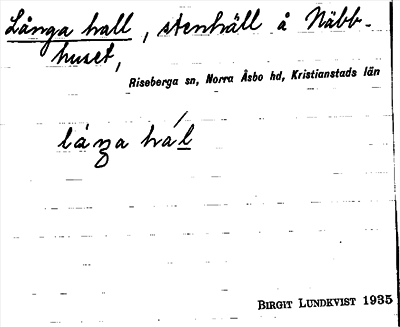 Långa hall, stenhäll å Näbb-
huset,
Riseberga sn, Norra Åsbo hd, Kristianstads län
låŋa hál
BIRGIT LUNDKVIST 1935